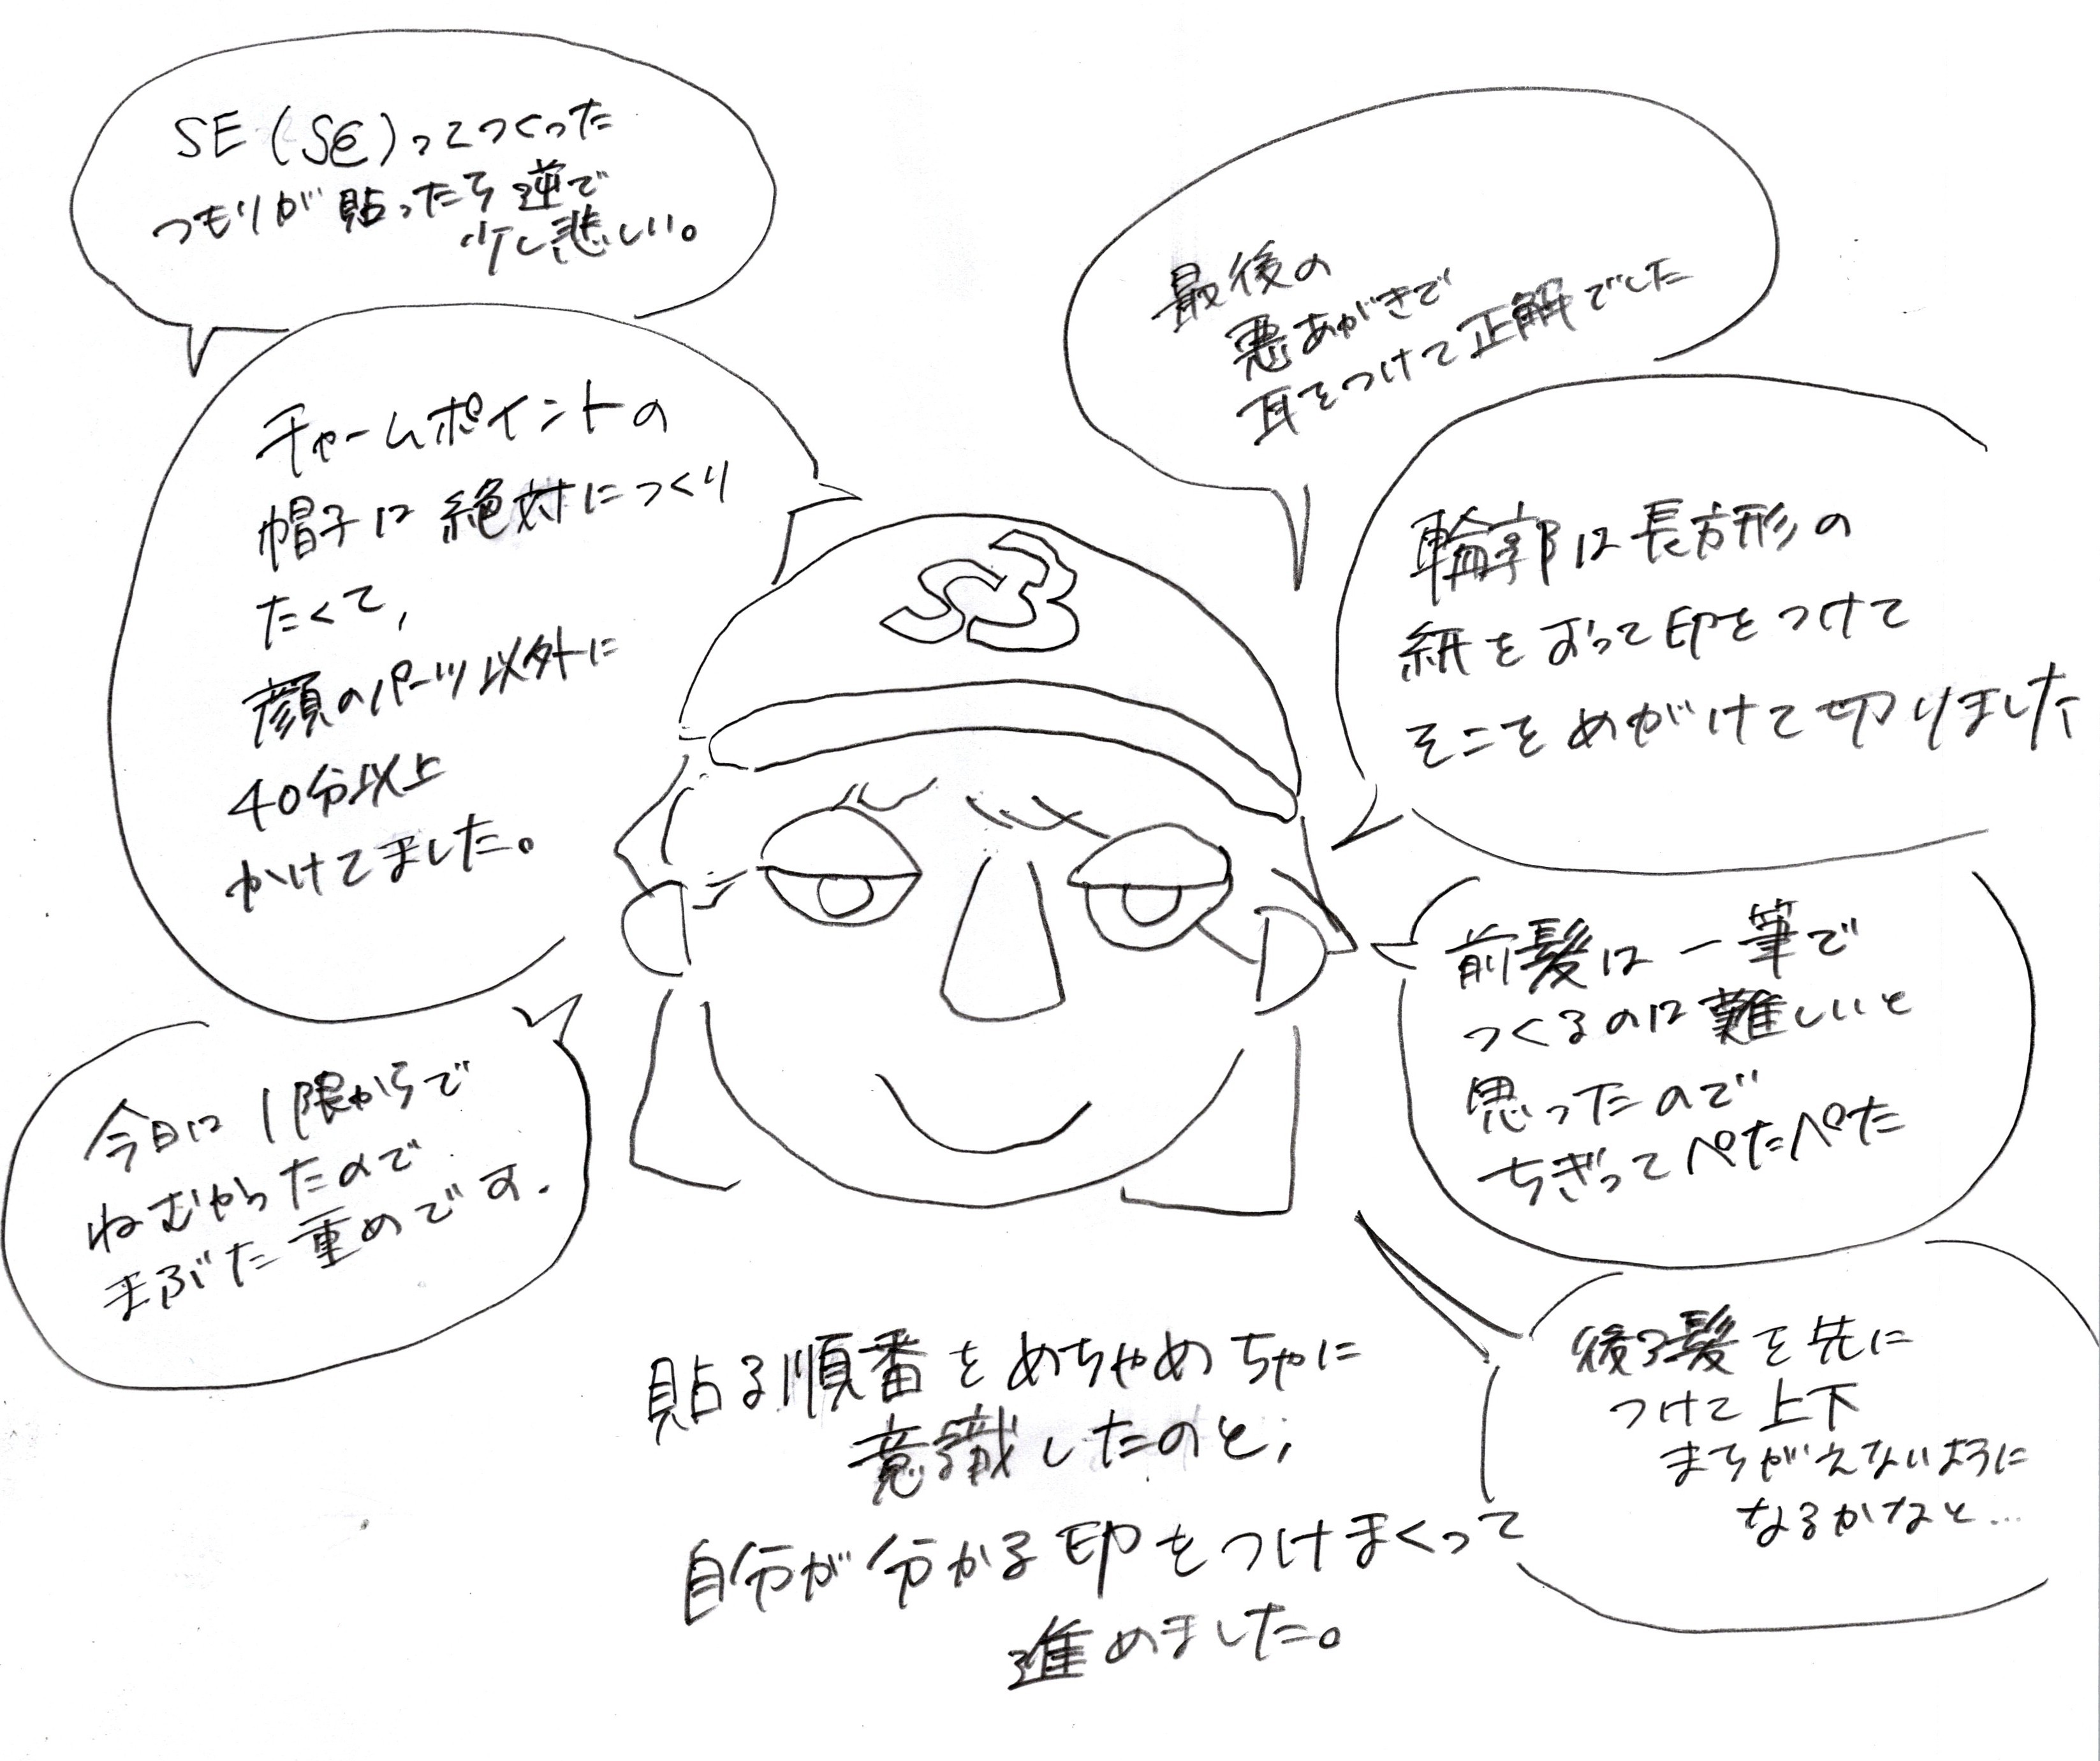 SE(SE)ってつくった
つもりが貼ったら逆で
少し悲しい。
チャームポイントの
帽子は絶対につくり
たくて,
顔のパーツ以外に
40分以上
かけてました。
今日は1限からで
ねむかったので
まぶた重めです.
最後の
悪あがきで
耳をつけて正解でした
輪郭は長方形の
紙をおって印をつけて
そこをめがけて切りました
前髪は一筆で
つくるのは難しいと
思ったので
ちぎってペたペた
後ろ髪を先に
つけて上下
まちがえないように
なるかなと...
貼る順番をめちゃめちゃに
意識したのと,
自分が分かる印をつけまくって
進めました。